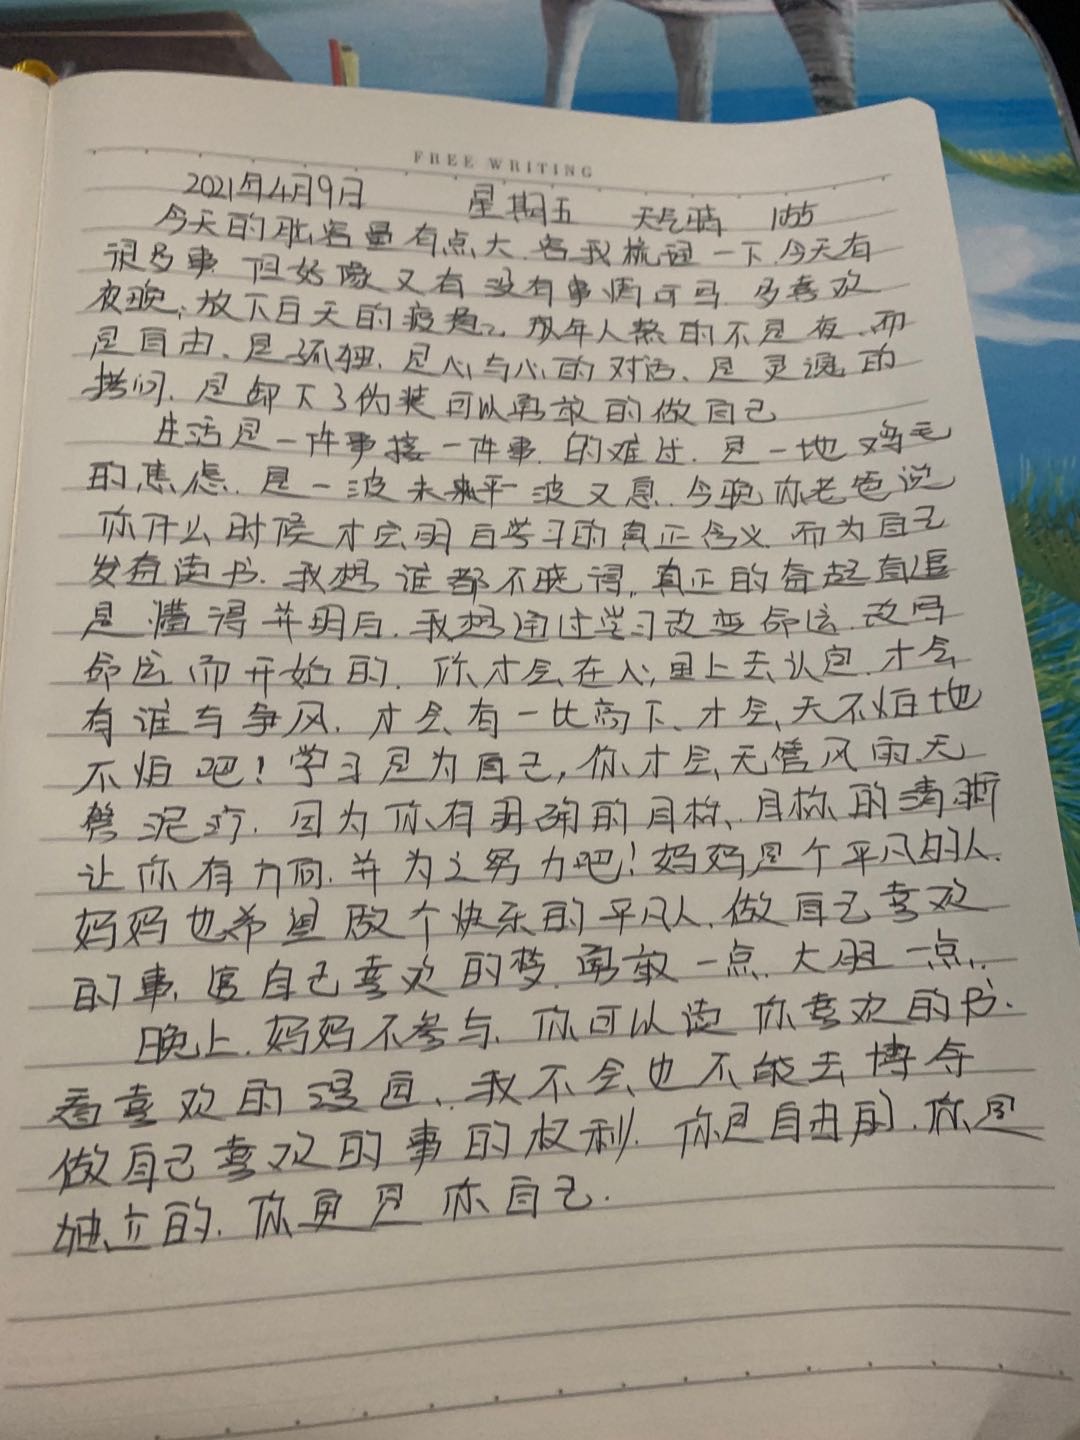 FREE WRITING
2021年4月9日 星期五 天气晴 1055
今天的 量有点大.容我梳理一下.今天有
很多事 但好像又有没有事情可 多喜欢
夜晚,放下白天的疲惫.成年人熬的不是夜.而
是自由、是孤独.是心与心的对话、是灵魂的
拷问.是卸下了伪装可以勇敢的做自己
生活是一件事接一件事.的难过.是一地鸡毛
的焦虑.是一波未平一波又息.今晚你老爸说
你什么时候才会明白学习的真正含义 而为自己
发奋读书.我想谁都不晓得.真正的奋起直追
是懂得并明白.我想通过学习改变命运.改写
命运而开始的.你才会在心里上去认定.才会
有谁与争风.才会有一比高下、才会天不怕地
不怕吧!学习是为自己,你才会无管风雨.无
管泥泞.因为你有明确的目标、目标的清晰
让你有方向.并为之努力吧!妈妈是个平凡的人.
妈妈也希望做个快乐的平凡人.做自己喜欢
的事、追自己喜欢的梦.勇敢一点.大胆一点.
晚上.妈妈不参与.你可以读你喜欢的书.
看喜欢的漫画、我不会也不能去博夺
做自己喜欢的事的权利.你是自由的.你是
独立的.你更是你自己.